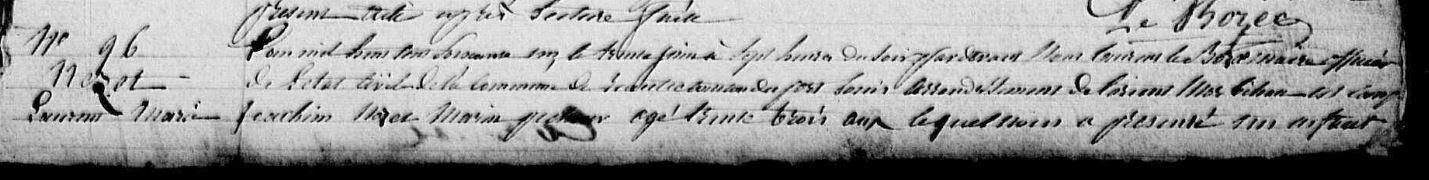 présent acte après lecture faite
Le Bozec
N° 96
Nezet
Laurent Marie
L'an mil huit cent soixante onze le trente juin à sept heures du soir par devant Nous Laurent le Bozec Maire officier
de l'état civil de la commune de canton du port Louis arrondissement de Lorient Morbihan est comp
Joachim Nezet Marin pêcheur agé trente trois ans lequel nous a présenté un enfant